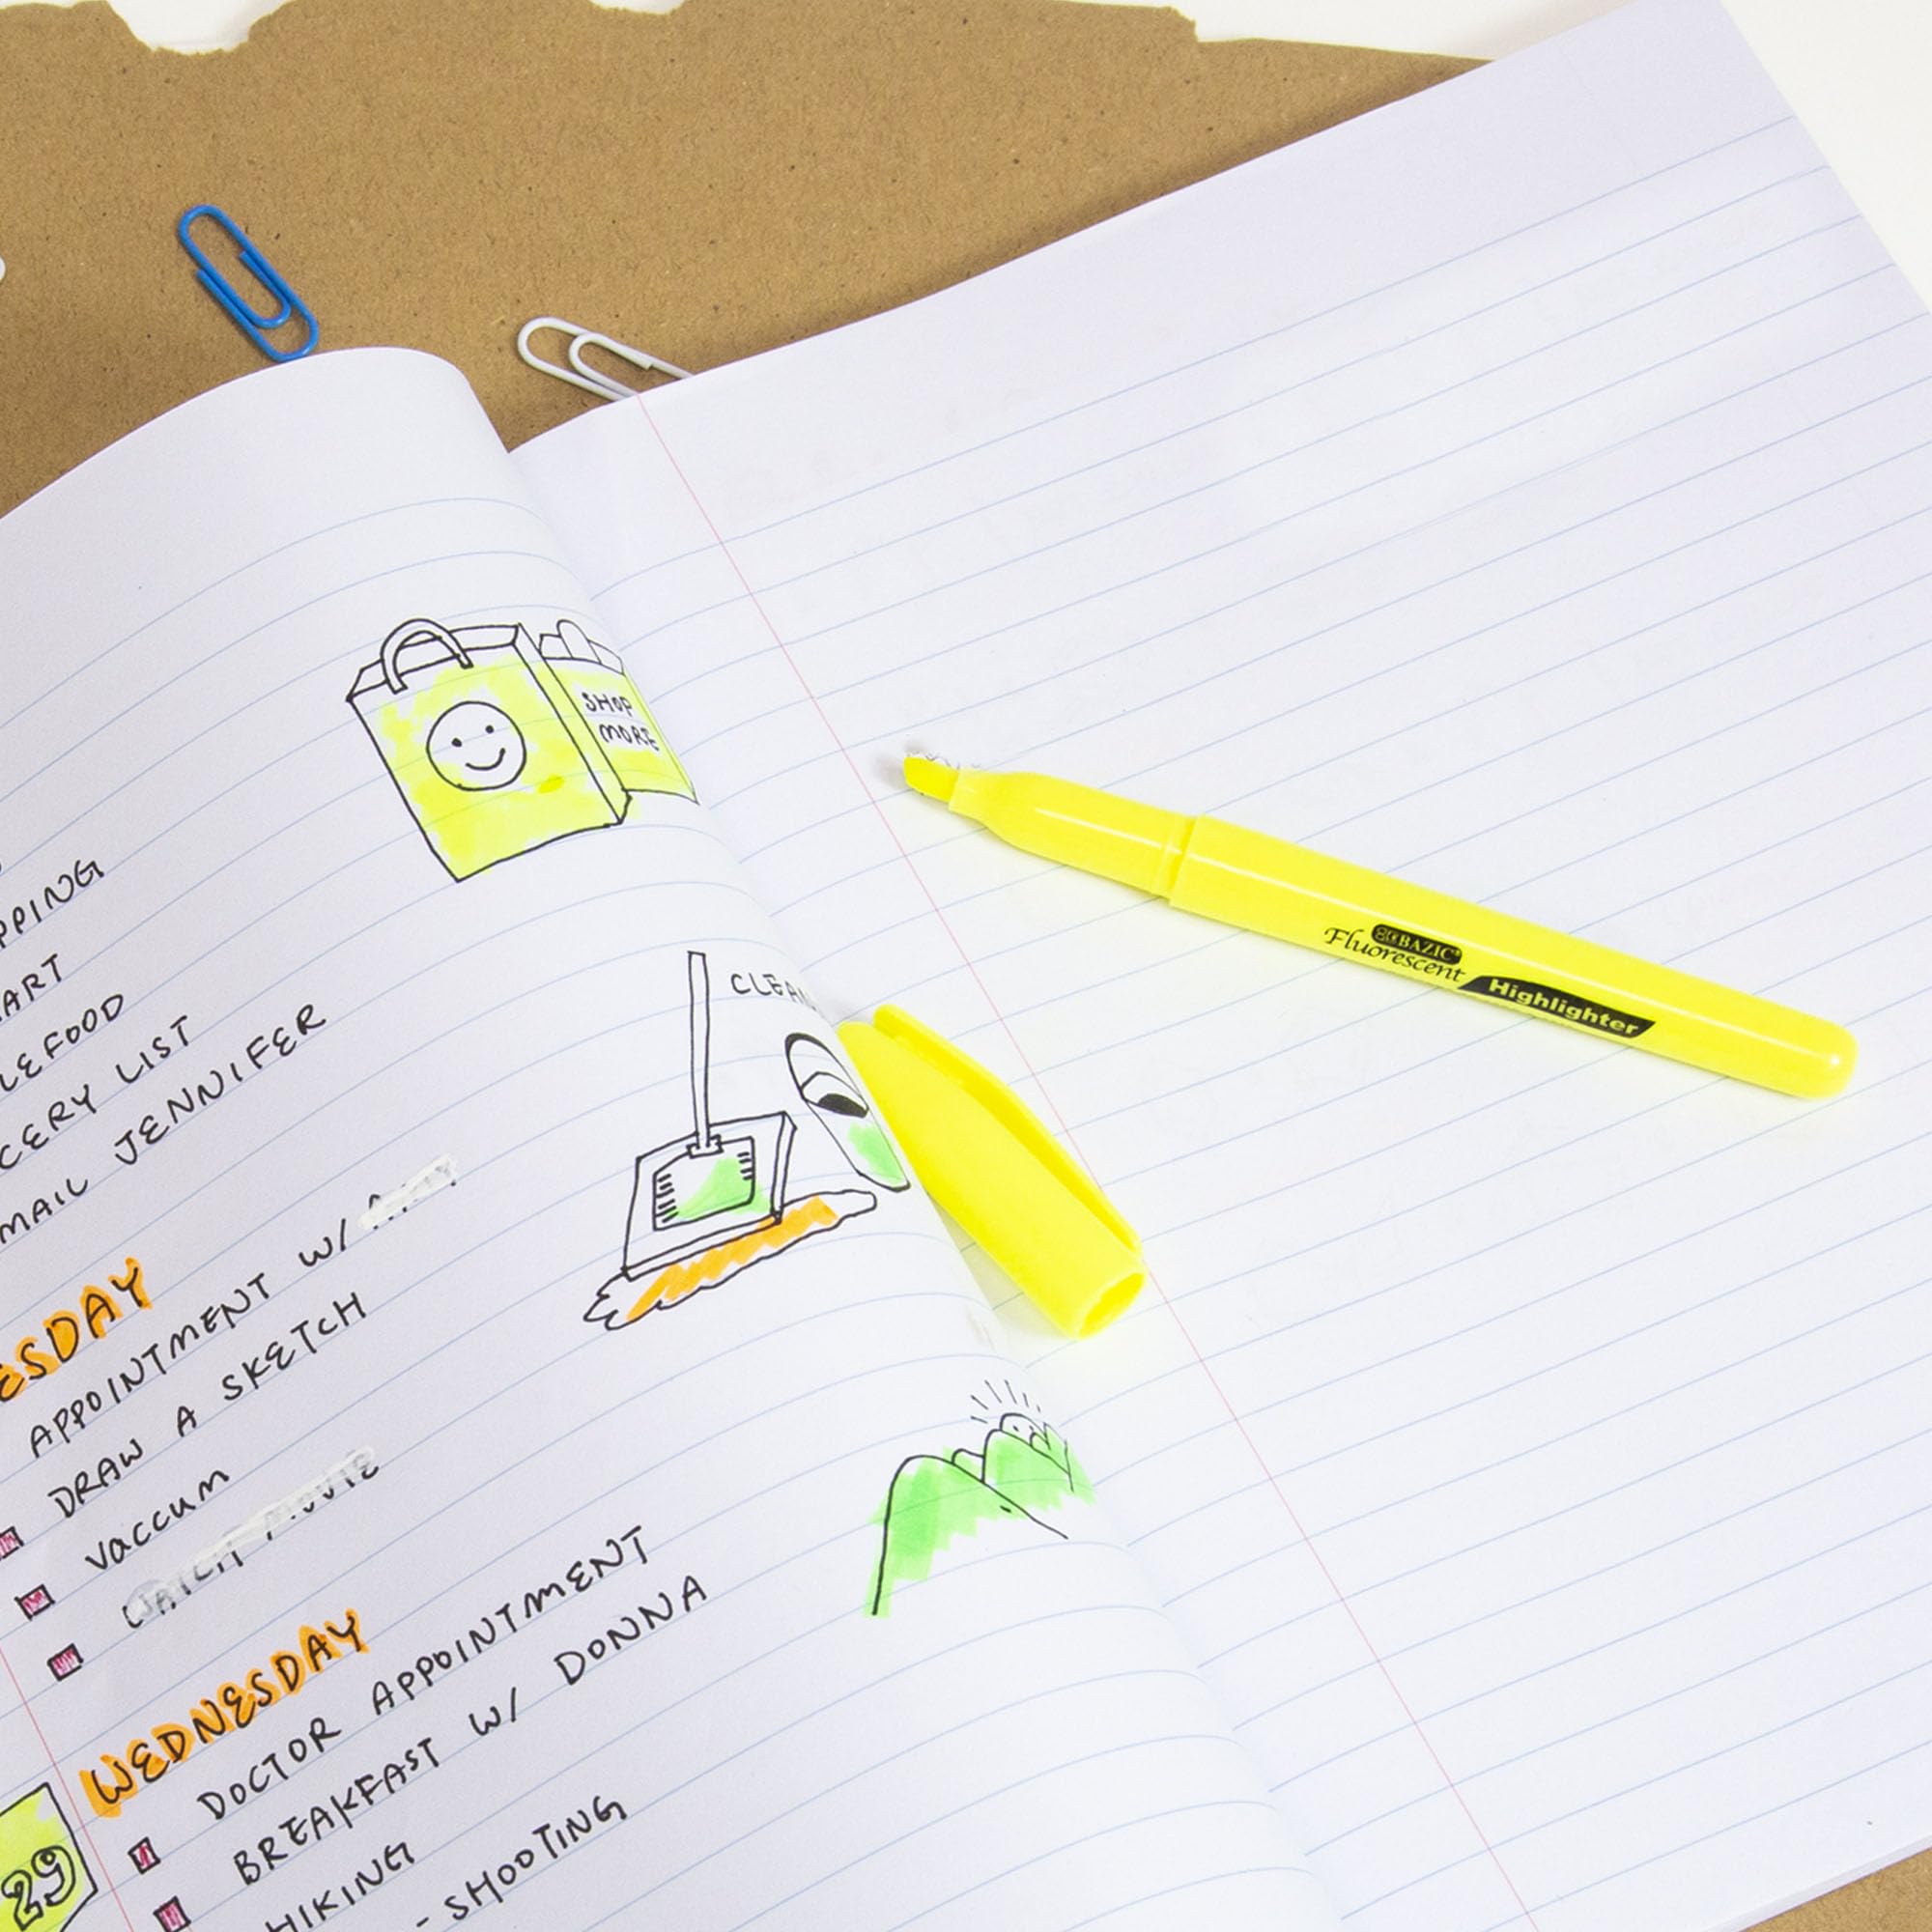 SHOP
MORE
PPING
ART
LEFOOD
CERY LIST
MAIL JENNIFER
CLEAN
ESDAY
APPOINTMENT W/
DRAW A SKETCH
VACCUM
WATCH MOVIE
WEDNESDAY
DOCTOR APPOINTMENT
BREAKFAST W/ DONNA
HIKING
- SHOOTING
29
BAZIC
Fluorescent
Highlighter